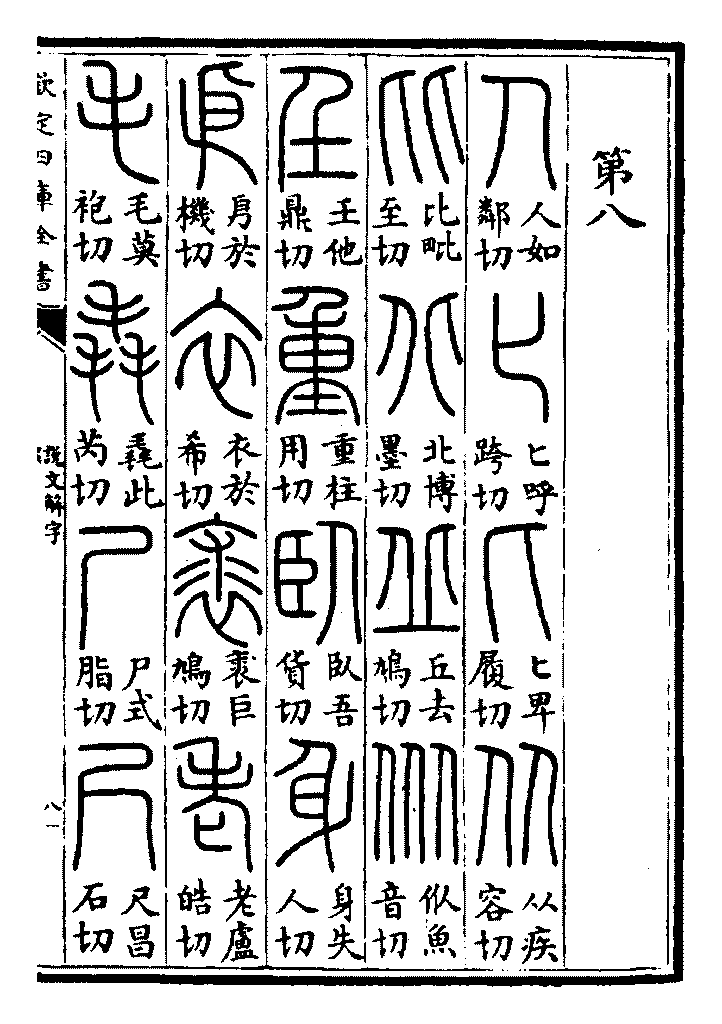 第八
人如鄰切
匕呼跨切
匕卑履切
从疾容切
比毗至切
北博墨切
丘去鳩切
㐺魚音切
壬他鼎切
重柱用切
臥吾貨切
身失人切
㐆於機切
衣於希切
裘巨鳩切
老盧皓切
毛莫袍切
毳此芮切
尸式脂切
尺昌石切
欽定四庫全書
說文解字
八一